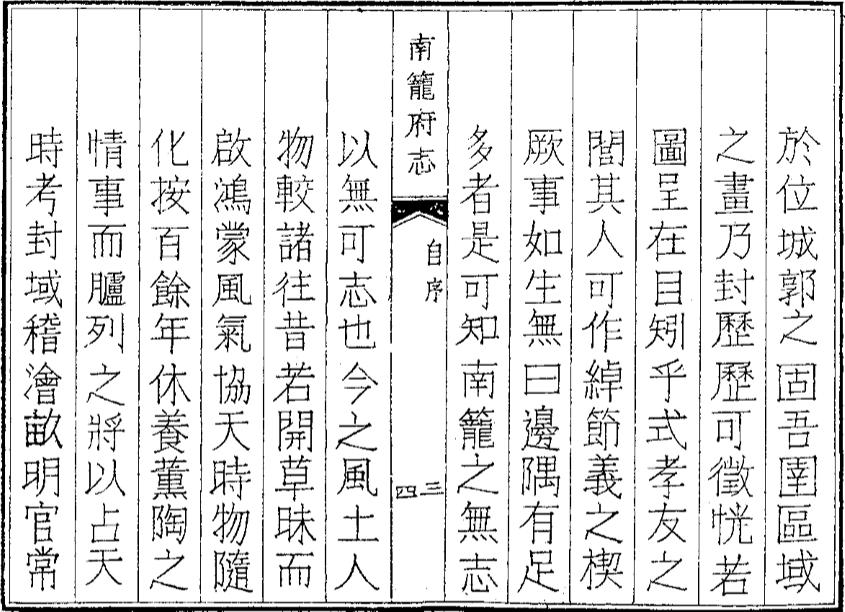 於位城郭之固吾圉區域
之畫乃封歷歷可徵恍若
圖呈在目矧乎式孝友之
閭其人可作綽節義之楔
厥事如生無曰邊隅有足
多者是可知南籠之無志
南籠府志
自序
三
四
以無可志也今之風土人
物較諸往昔若開草昧而
啟鴻蒙風氣協天時物隨
化按百餘年休養薰陶之
情事而臚列之將以占天
時考封域稽澮畝明官常